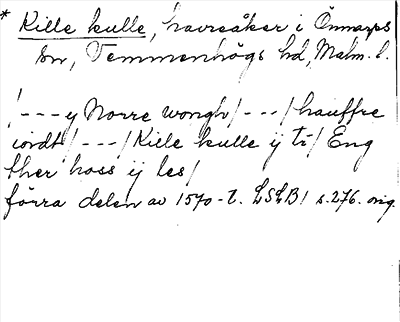 * Kille kulle, havreåker i Önnarps
sn, Vemmenhögs hd, Malm. l.
/---y Norre wongh/---/hauffre
iordt/---/Kille kulle ij tr/ Eng
ther hoss ij les/
förra delen av 1570-t. LSLB1 s.276. orig.